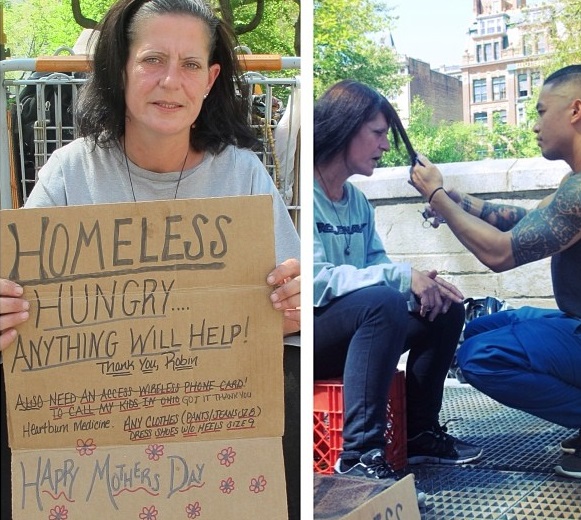 HOMELESS
HUNGRY....
ANYTHING WILL HELP!
Thank You, Robin
ALSO NEED AN ACCESS WIRELESS PHONE CARD!
TO CALL MY KIDS IN OHIO GOT IT THANK YOU
Heartburn Medicine. ANY CLOTHES (PANTS/JEANS SZ 8)
DRESS SHOES W/O HEELS SIZE 9
HAPPY MOTHERS DAY
ESS